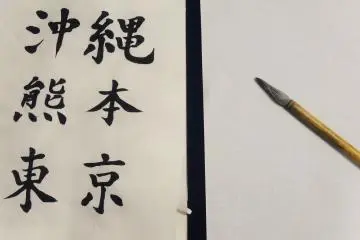 沖縄
熊本
東京